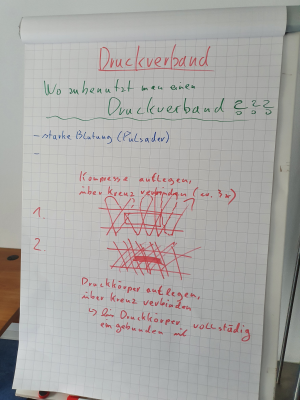 Druckverband
Wo zu benutzt man einen
Druckverband ???
- starke Blutung (Pulsader)
-
Kompresse auflegen,
über Kreuz verbinden (ca. 3x)
1.
2.
Druckkörper auflegen,
über Kreuz verbinden
↳ bis Druckkörper vollständig
eingebunden ist